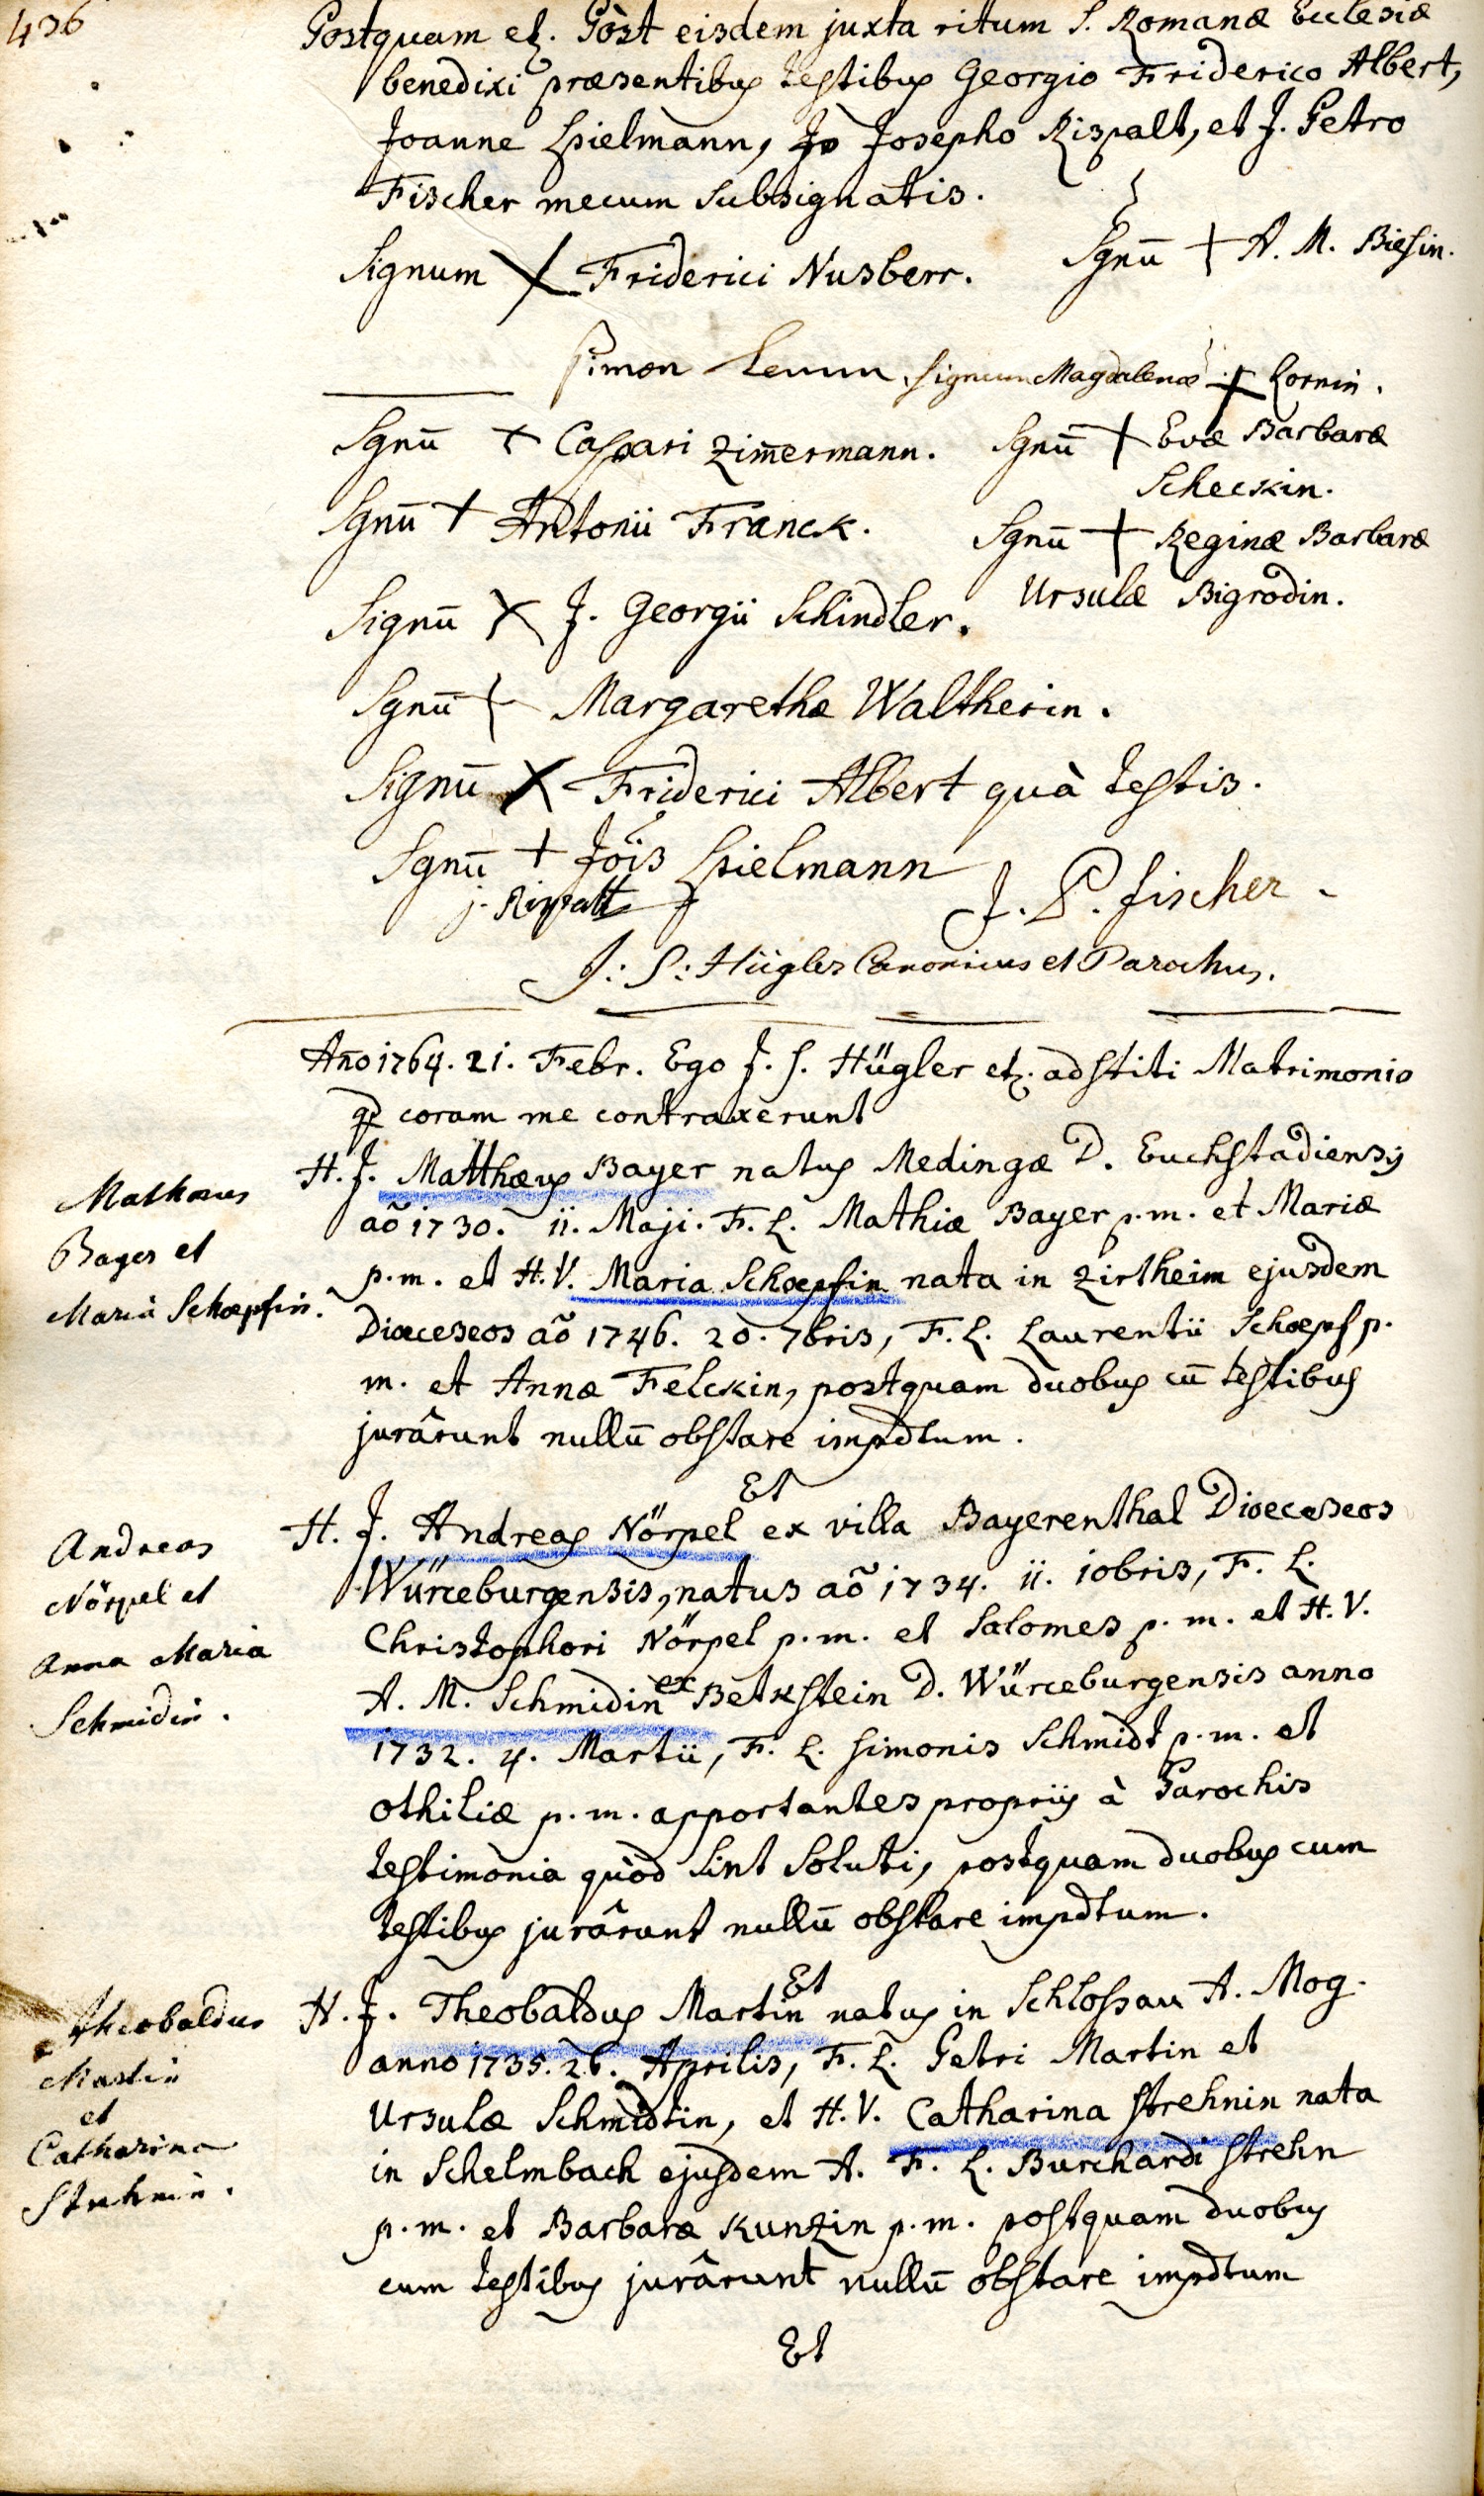 436
Postquam etz. Pòst eisdem juxta ritum S. Romanæ Ecclesiæ
benedixi præsentibus testibus Georgio Friderico Albert,
Joanne Spielmann, Josepho Rispalt, et J. Petro
Fischer mecum subsignatis.
Signum X Friderici Nusberr. Sgnū + A. M. Biesin.
Simon signum Magdalenæ + Kornin.
Sgnū + Caspari Zim̄ermann. Sgnū + Evæ Barbaræ
Scheckin.
Sgnū + Antonii Franck. Sgnū + Reginæ Barbaræ
Ursulæ Bigrodin.
Signū X J. Georgii Schindler.
Sgnū + Margarethæ Waltherin.
Signū X Friderici Albert quà testis.
Sgnū + Jõis Spielmann
J. Rispalt J. P. fischer
J: S: Hügler Canonicus et Parochus.
Año 1764. 21. Febr. Ego J. S. Hügler etz. adstiti Matrimonio
qd coram me contraxerunt
Mathæus
Bayer et
Maria Schoepfin.
H. J. Matthæus Bayer natus Medingæ D. Euchstadiensis
aõ 1730. ii. Maji. F. L. Mathiæ Bayer p.m. et Mariæ
p.m. et H.V. Maria Schoepfin nata in Zirtheim ejusdem
Dioeceseos aõ 1746. 20. 7bris, F. L. Laurentii Schoepf p.
m. et Annæ Felckin, postquam duobus cū testibus
jurârunt nullū obstare impdtum.
Et
Andreas
Nörpel et
Anna Maria
Schmidin.
H. J. Andreas Nörpel ex villa Bayerenthal Dioeceseos
Würceburgensis, natus aõ 1734. ii. iobris, F. L.
Christophori Nörpel p.m. et Salomes p.m. et H.V.
A. M. Schmidin ex Betxstein D. Würceburgensis anno
1732. 4. Martii, F. L. Simonis Schmidt p.m. et
Othiliæ p.m. apportantes propriis à Parochis
testimonia quòd sint soluti, postquam duobus cum
testibus jurârunt nullū obstare impdtum.
Et
Theobaldus
Martin
et
Catharina
Strehnin.
H. J. Theobaldus Martin natus in Schlossau A. Mog.
anno 1735. 26. Aprilis, F. L. Petri Martin et
Ursulæ Schmidtin, et H.V. Catharina Strehnin nata
in Schelmbach ejusdem A. F. L. Burchardi Strehn
p.m. et Barbara Kunzin p.m. postquam duobus
cum testibus jurârunt nullū obstare impdtum
Et